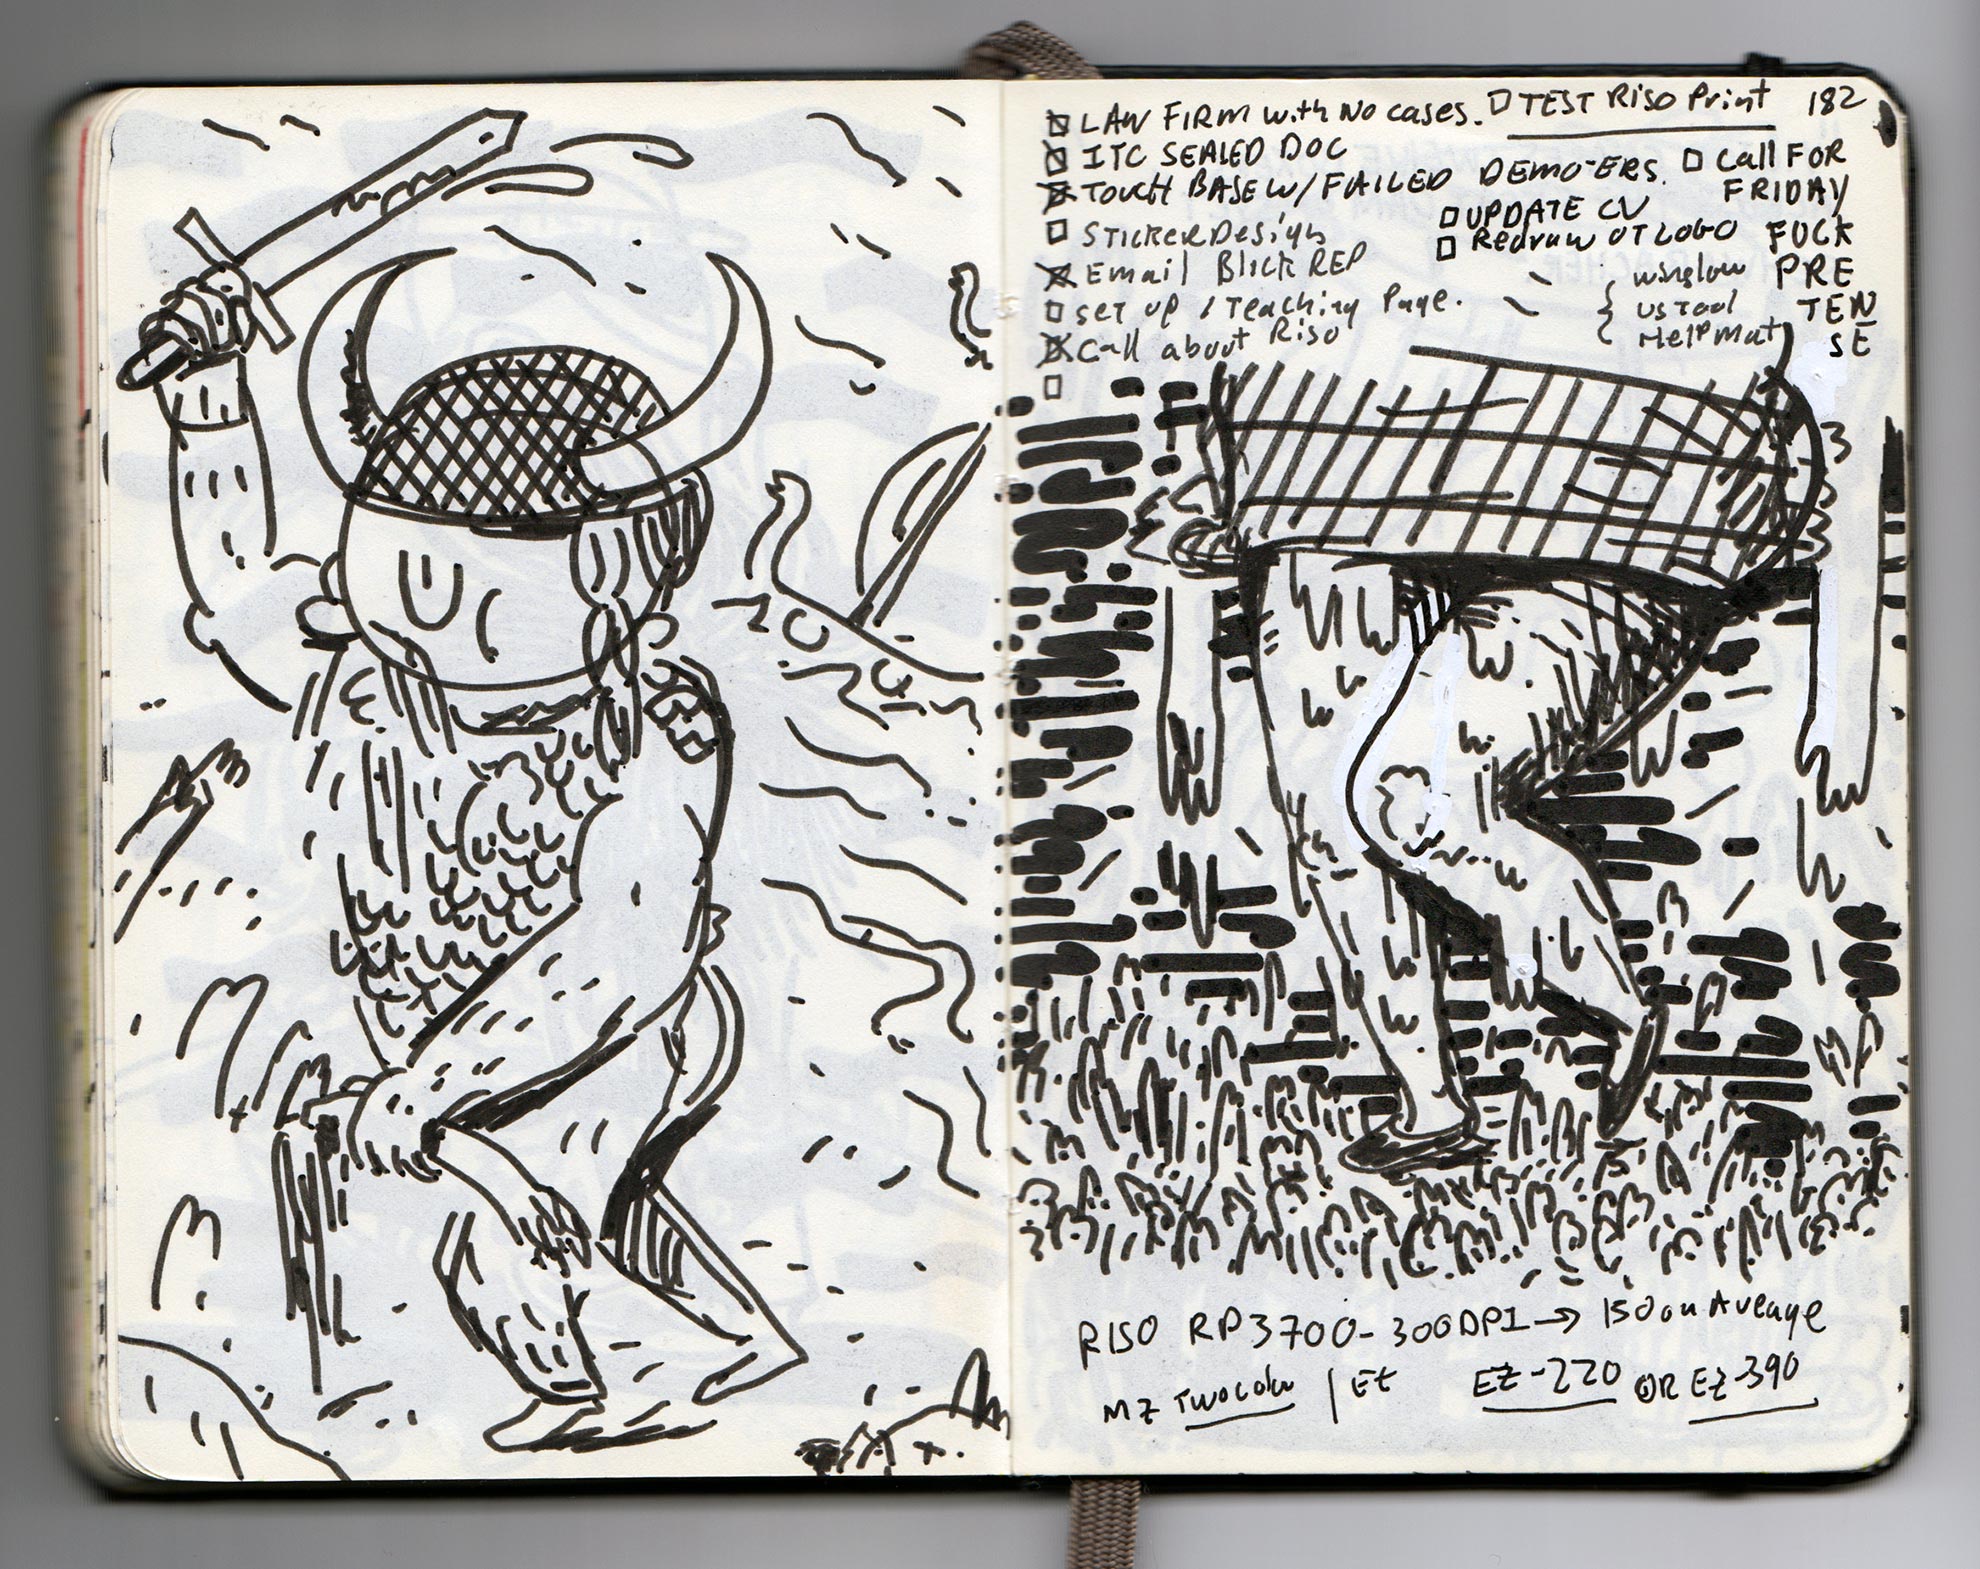 LAW FIRM with No cases. TEST Riso Print 182
ITC SEALED DOC
TOUCH BASE W/ FAILED DEMO-ERS. Call FOR
FRIDAY
Sticker Design
UPDATE CV
Redraw OT LOGO FUCK
Email Blick REP
winslow PRE
set up / Teaching Page.
US Tool TEN
Call about Riso
Help Mat SE
RISO RP3700- 300DPI → 150 on Average
MZ Two color | EZ EZ-220 OR EZ-390